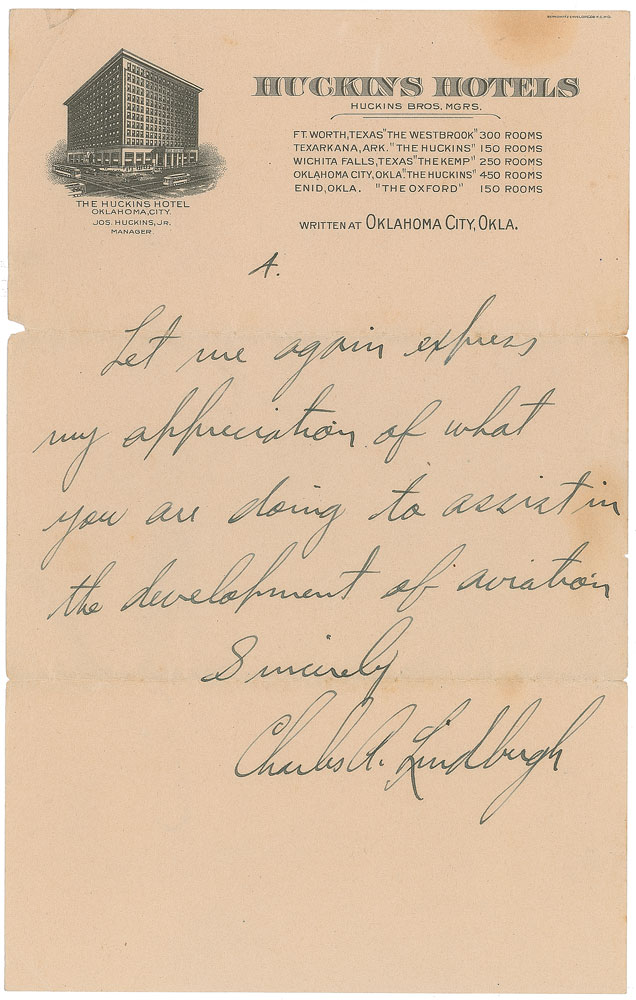 HUCKINS HOTELS
HUCKINS BROS. MGRS.
FT. WORTH, TEXAS "THE WESTBROOK" 300 ROOMS
TEXARKANA, ARK. "THE HUCKINS" 150 ROOMS
WICHITA FALLS, TEXAS "THE KEMP" 250 ROOMS
OKLAHOMA CITY, OKLA. "THE HUCKINS" 450 ROOMS
ENID, OKLA. "THE OXFORD" 150 ROOMS
THE HUCKINS HOTEL
OKLAHOMA, CITY.
JOS. HUCKINS, JR.
MANAGER
WRITTEN AT OKLAHOMA CITY, OKLA.
4.
Let me again express
my appreciation of what
you are doing to assist in
the development of aviation
Sincerely
Charles A. Lindbergh